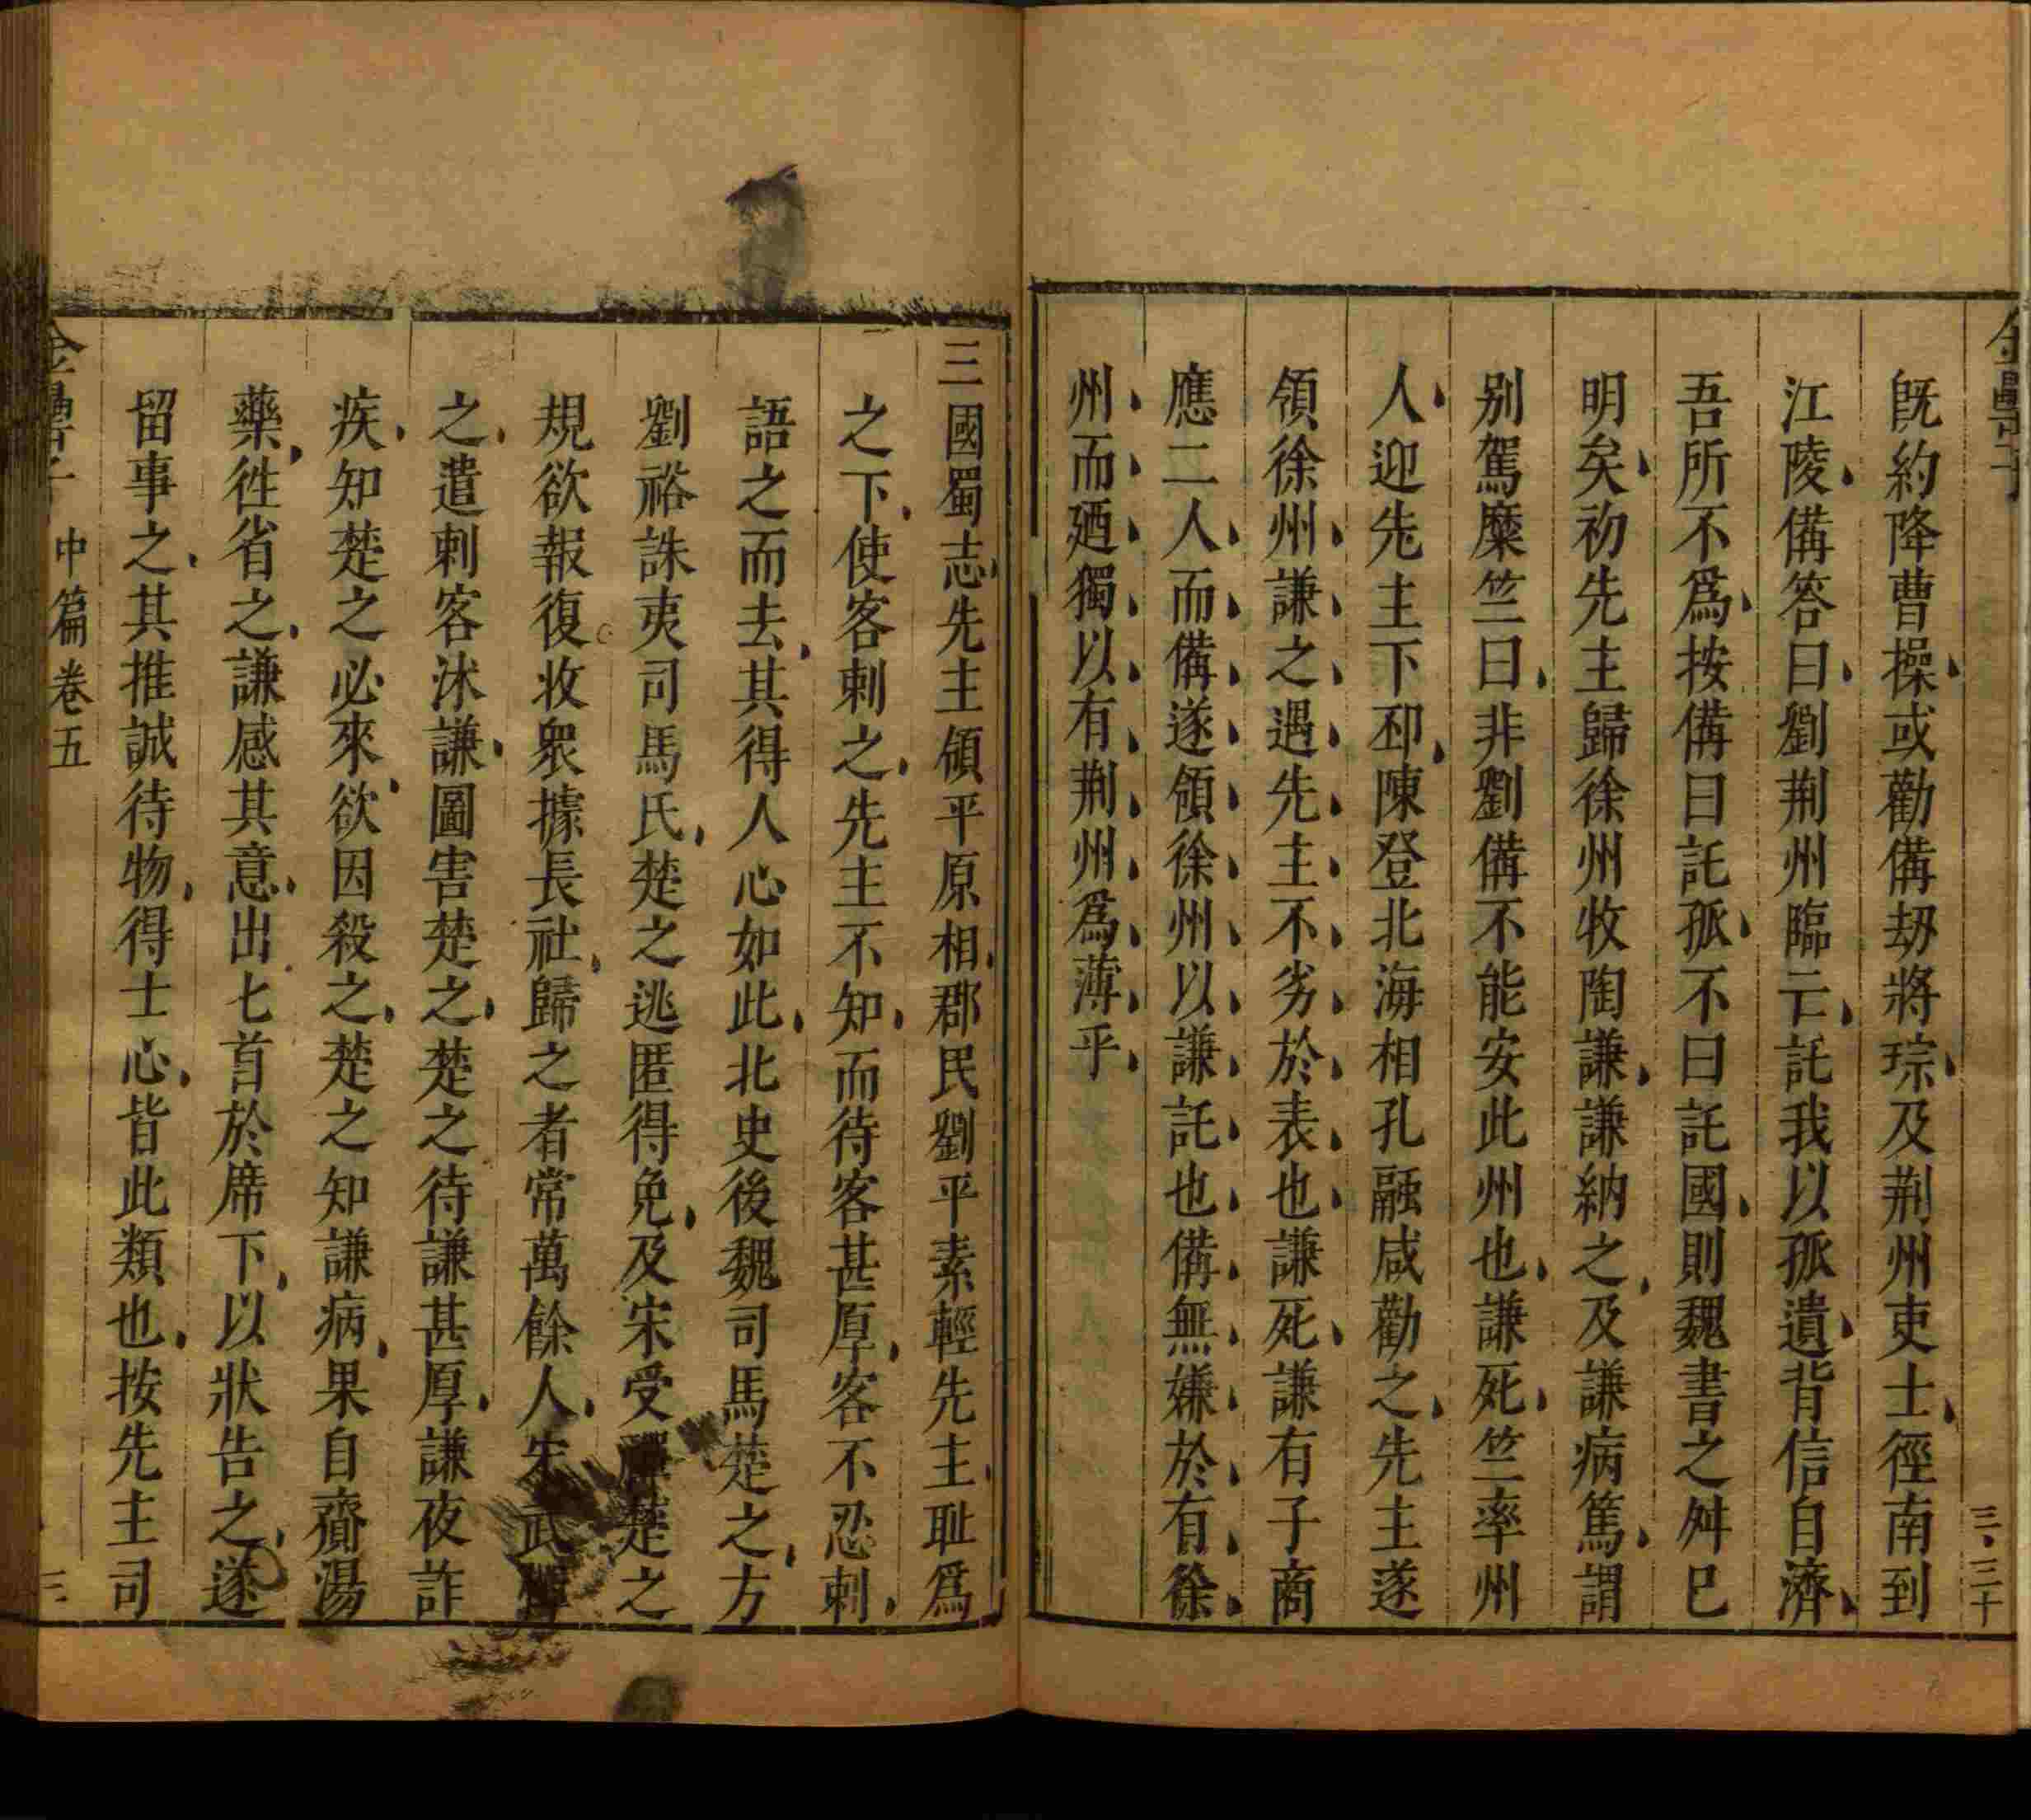 既約降曹操或勸備刼將琮及荆州吏士徑南到
江陵備答曰劉荆州臨亡託我以孤遺背信自濟
吾所不爲按備曰託孤不曰託國則魏書之舛巳
明矣初先主歸徐州牧陶謙謙納之及謙病篤謂
别駕糜竺曰非劉備不能安此州也謙死竺率州
人迎先主下邳陳登北海相孔融咸勸之先主遂
領徐州謙之遇先主不劣於表也謙死謙有子商
應二人而備遂領徐州以謙託也備無嫌於有徐
州而廼獨以有荆州爲薄乎
三國蜀志先主領平原相郡民劉平素輕先主耻爲
之下使客刺之先主不知而待客甚厚客不忍刺
語之而去其得人心如此北史後魏司馬楚之方
劉裕誅夷司馬氏楚之逃匿得免及宋受禪楚之
規欲報復收衆據長社歸之者常萬餘人宋武憚
之遣刺客沐謙圖害楚之楚之待謙甚厚謙夜詐
疾知楚之必來欲因殺之楚之知謙病果自齎湯
藥徃省之謙感其意出七首於席下以狀告之遂
留事之其推誠待物得士心皆此類也按先主司
中篇卷五